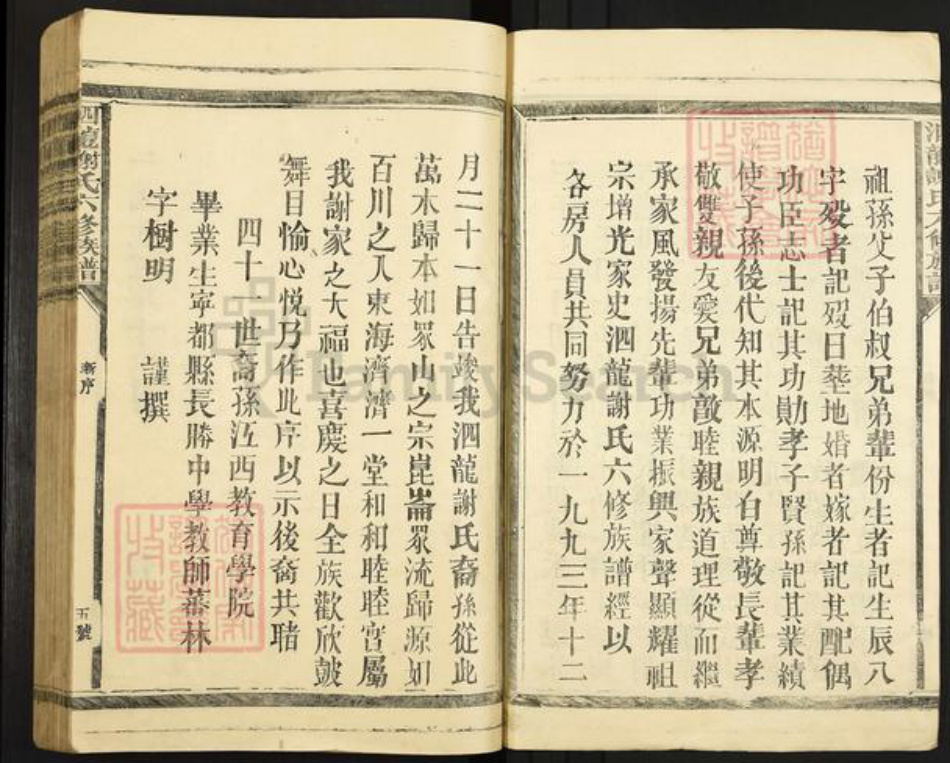 祖孫父子伯叔兄弟輩份生者記生辰八
字殁者記殁日塟地婚者嫁者記其配偶
功臣志士記其功勛孝子賢孫記其業績
使子孫後代知其本源明白尊敬長輩孝
敬雙親友愛兄弟敵睦親族道理從而繼
承家風發揚先輩功業振興家聲顯耀祖
宗增光家史泗龍謝氏六修族譜經以
各房人員共同努力於一九九三年十二
月二十一日告竣我泗龍謝氏裔孫從此
萬木歸本如眾山之宗崑崙眾流歸源如
百川之入東海濟濟一堂和和睦睦實屬
我謝家之大福也喜慶之日全族歡欣鼓
舞目愉心悅乃作此序以示後裔共睹
四十一世裔孫江西教育學院
畢業生寧都縣長勝中學教師蕃林
字樹明 謹撰
謝氏六修族譜
新序
五號
FamilySearch